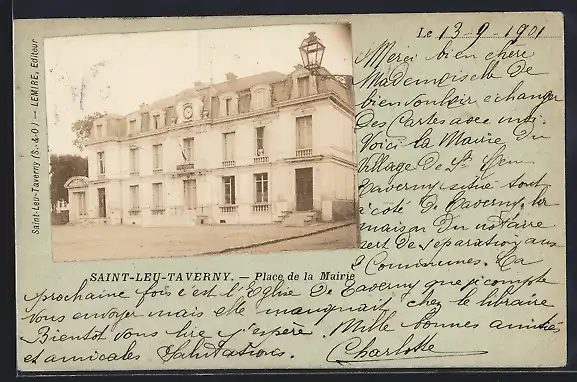 Le 13-9-1901
Merci bien chère
Mademoiselle de
bien vouloir échanger
des Cartes avec moi.
Voici la Mairie du
Village de St Leu
Taverny située tout
à côté de Taverny, la
maison du notaire
sert de séparation aux
2 Communes. La
SAINT-LEU-TAVERNY. — Place de la Mairie
prochaine fois c'est l'Eglise de Taverny que je compte
vous envoyer mais elle manquait chez le libraire
Bientôt vous lire j'espère. Mille bonnes amitiés
et amicales Salutations. Charlotte
Saint-Leu-Taverny (S.-&-O.) — LEMIRE, Editeur